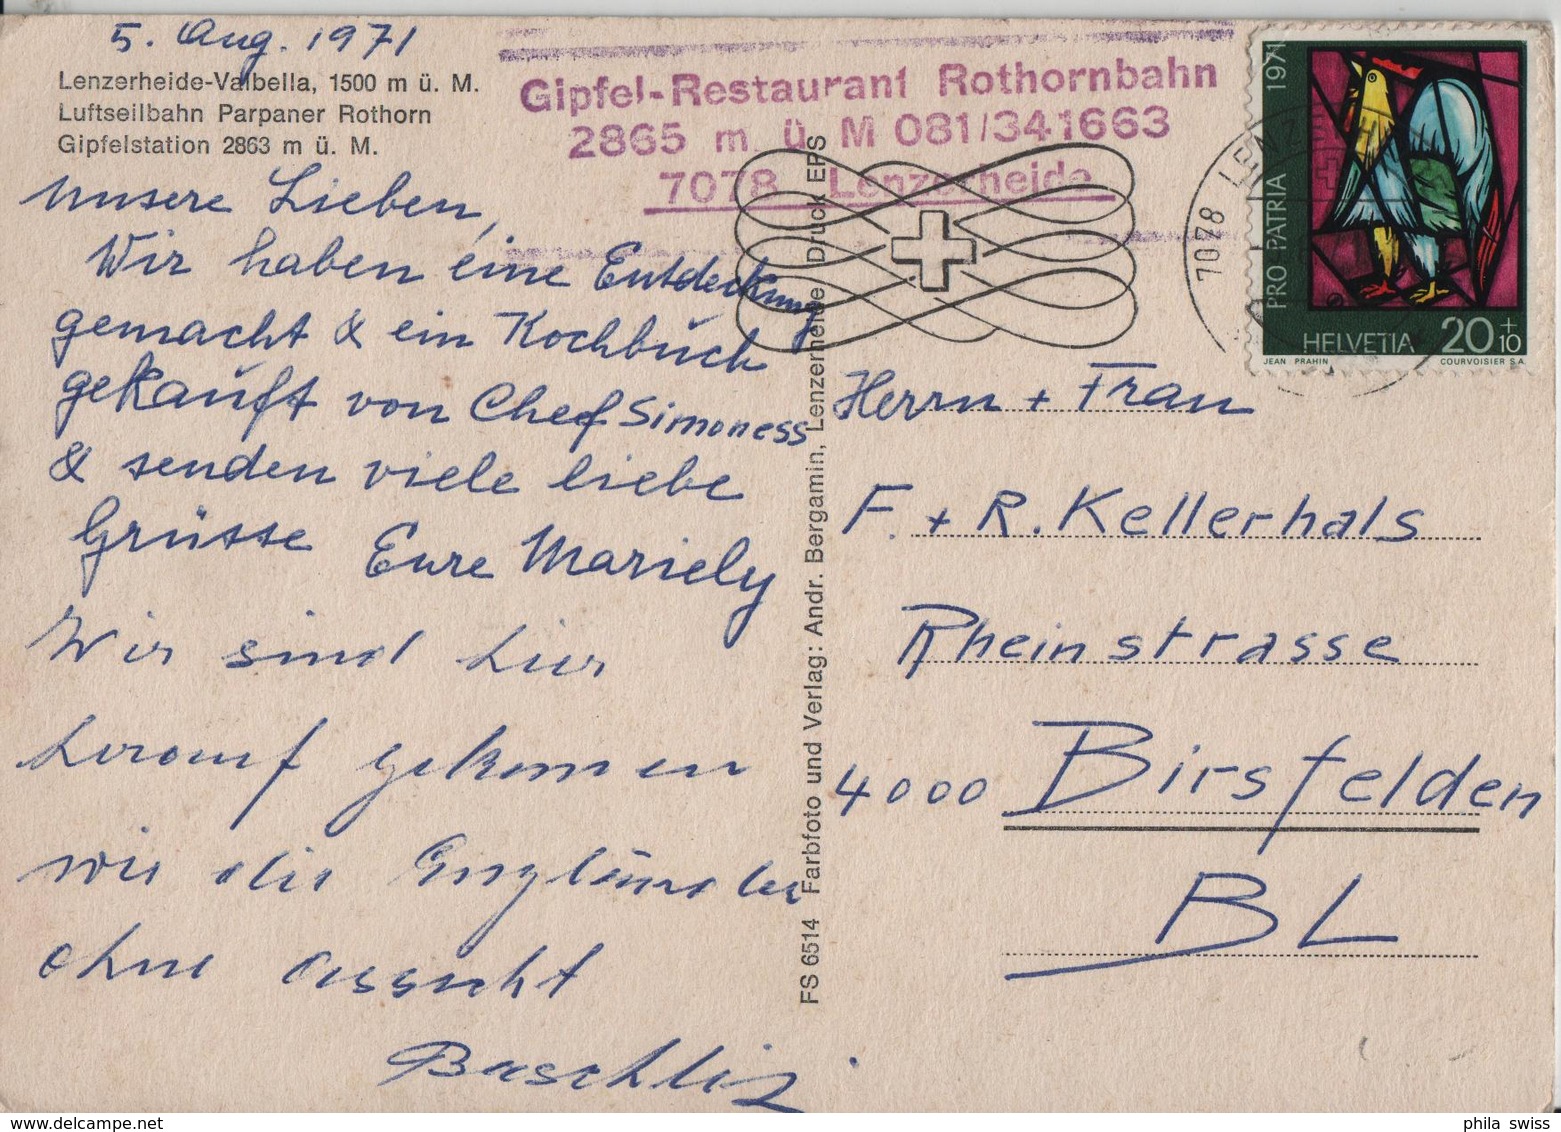 5. Aug. 1971
Lenzerheide-Valbella, 1500 m ü. M.
Luftseilbahn Parpaner Rothorn
Gipfelstation 2863 m ü. M.
Gipfel-Restaurant Rothornbahn
2865 m. ü. M 081/341663
7078 Lenzerheide
unsere Lieben,
Wir haben eine Entdeckung
gemacht & ein Kochbuch
gekauft von Chef Simoness
& senden viele liebe
Grüsse Eure Mariely
Wir sind hier
herauf gekommen
wie die Engländer
ohne Aussicht
FS 6514 Farbfoto und Verlag: Andr. Bergamin, Lenzerheide Druck EPS
7078 LENZ
PRO PATRIA 1971
HELVETIA 20+10
JEAN PRAHIN COURVOISIER S.A.
Herrn + Frau
F. + R. Kellerhals
Rheinstrasse
4000 Birsfelden
BL
phila swiss